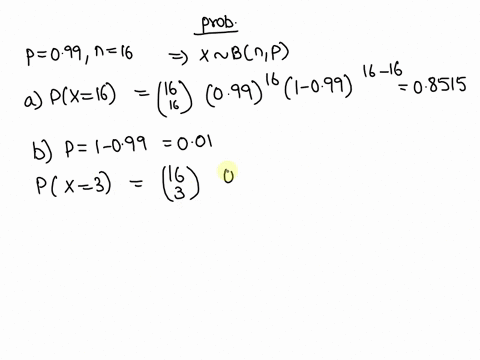 prob.
P=0.99, n=16 => X~B(n,P)
a) P(X=16) = (16 16) (0.99)^16 (1-0.99)^16-16 = 0.8515
b) P=1-0.99 = 0.01
P(X=3) = (16 3) 0